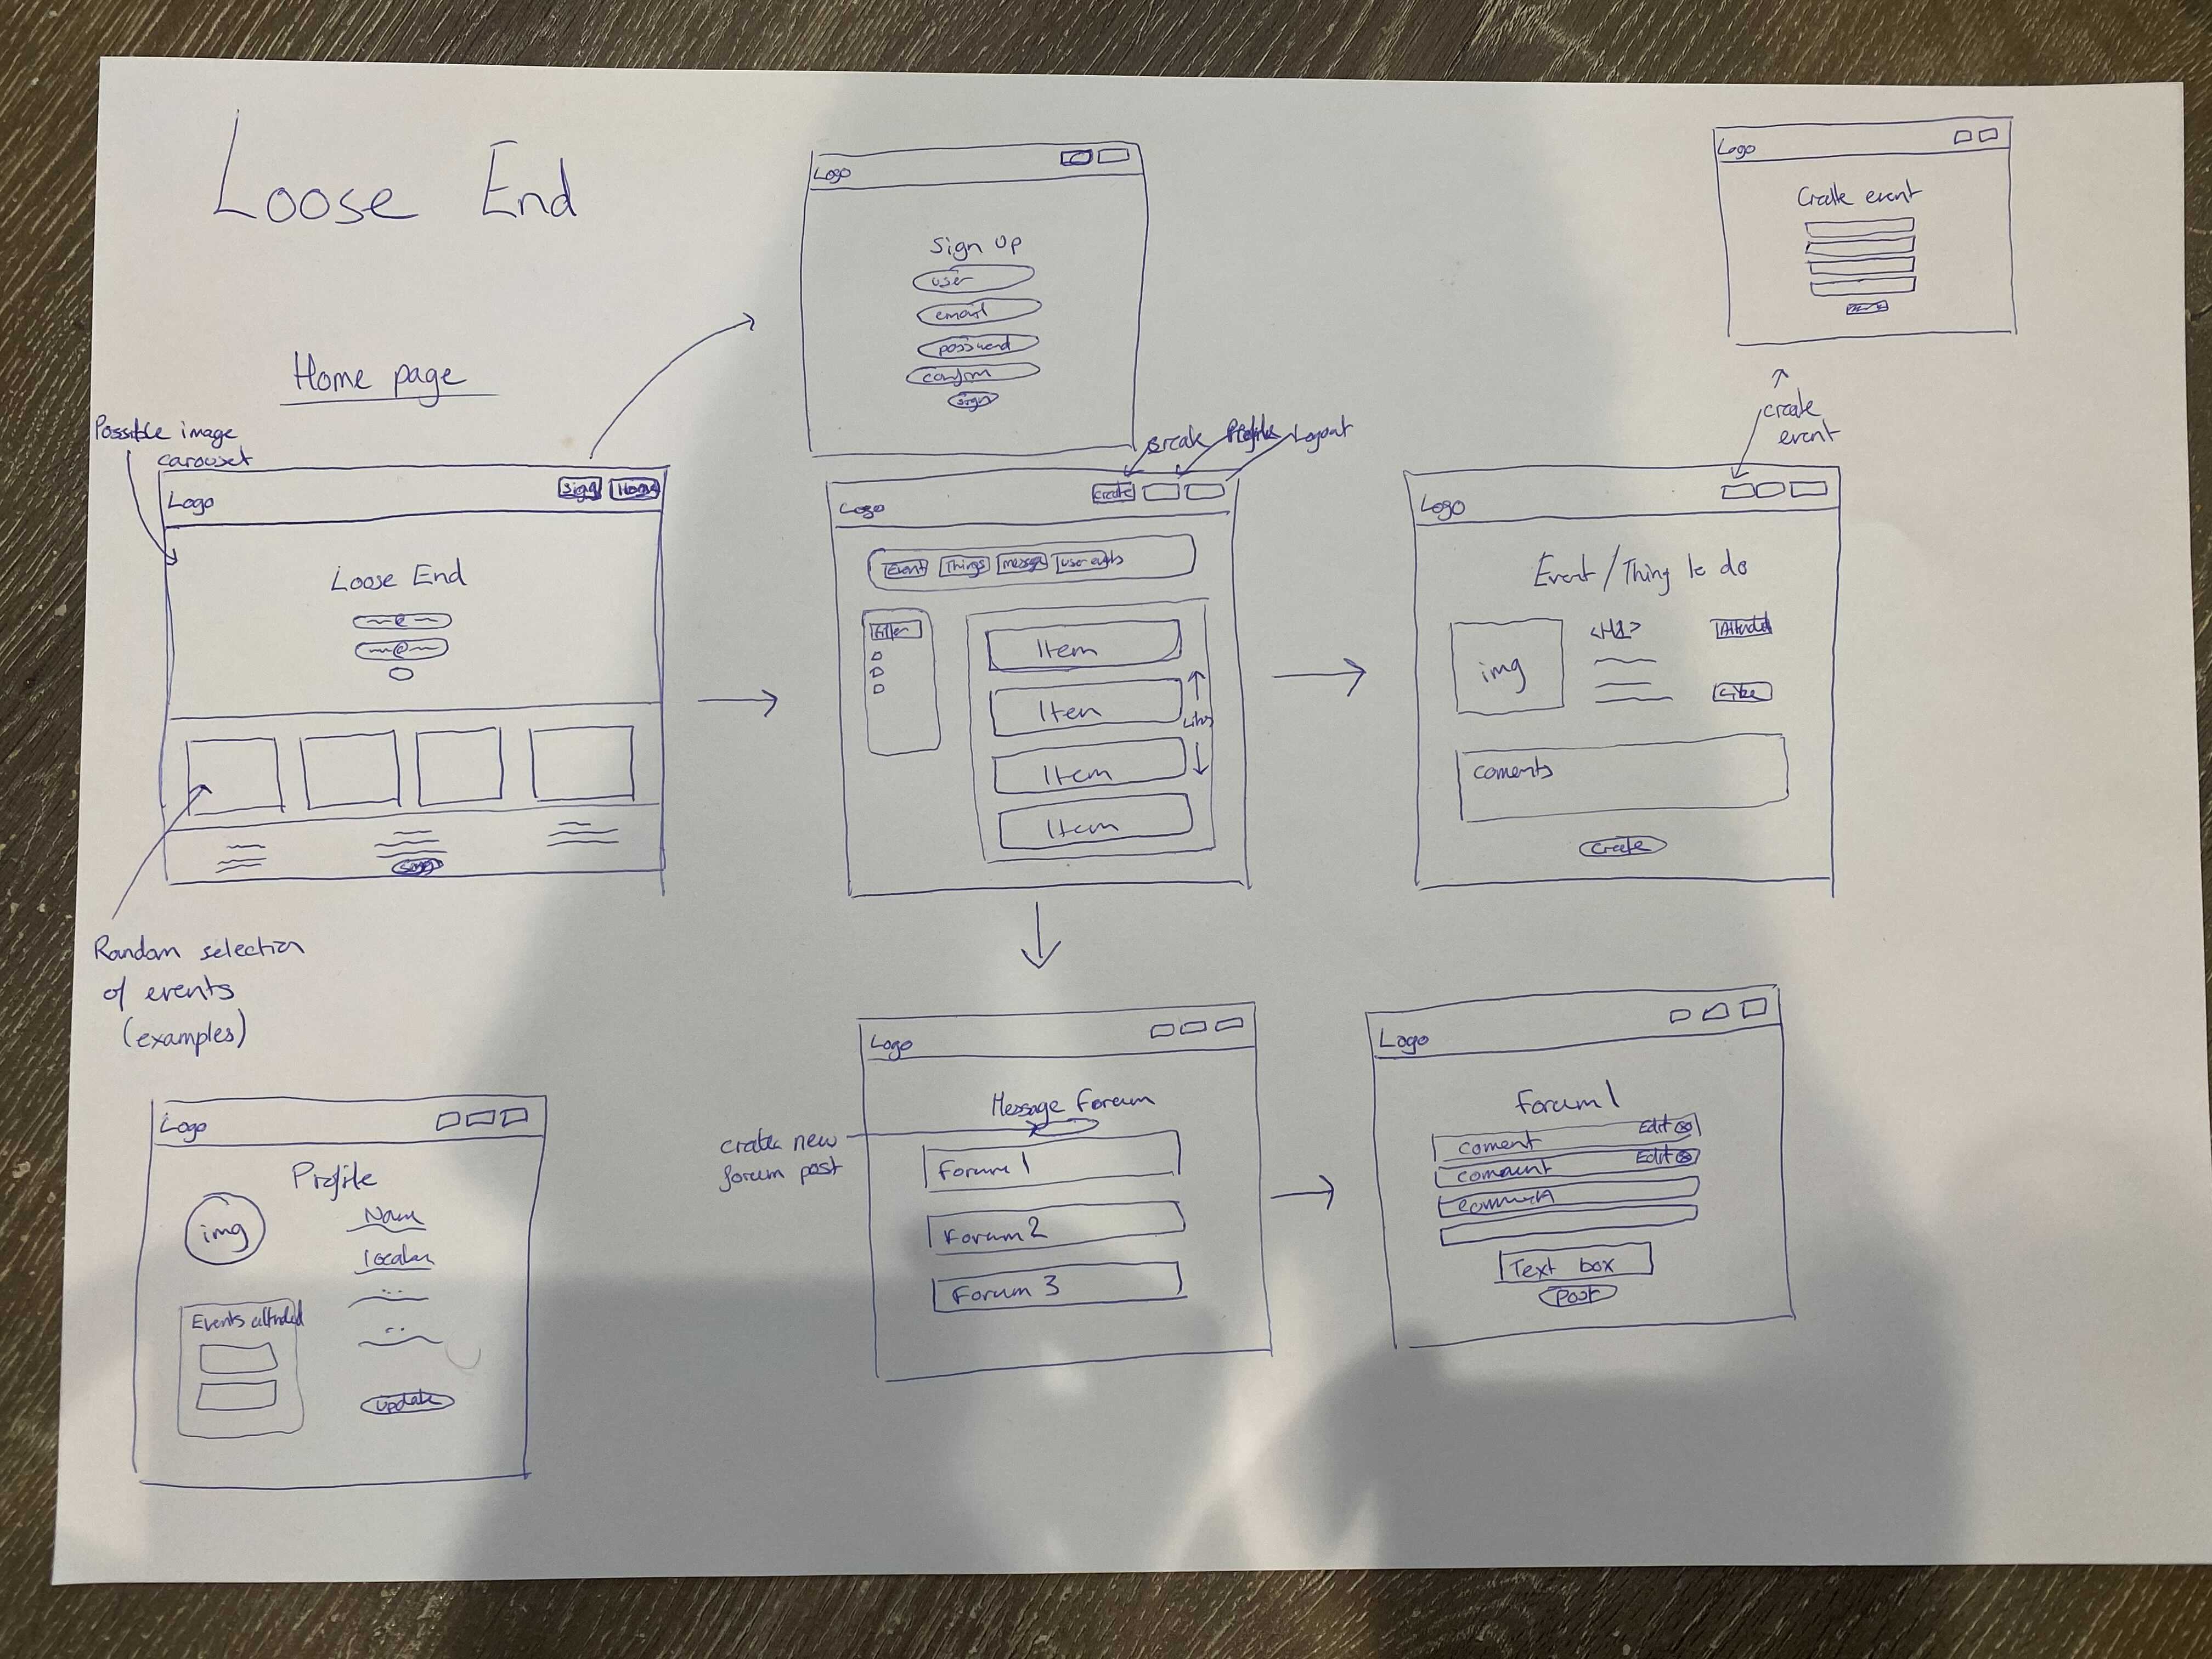 Loose End
Home page
Possible image
carousel
Logo
Sign
Home
Loose End
Random selection
of events
(examples)
Logo
Sign Up
user
email
password
confirm
sign
Create
Profile
Logout
Logo
create
Event
Things
message
user events
Filter
Item
Iten
Item
Item
Likes
Logo
Create event
create
event
Logo
Event/Thing to do
img
<H1>
Attended
Like
coments
Create
Logo
Profile
img
Name
location
Events attended
update
Logo
Message Forum
create new
forum post
Forum 1
Forum 2
Forum 3
Logo
Forum 1
coment
Edit
comment
Edit
comment
Text box
Post